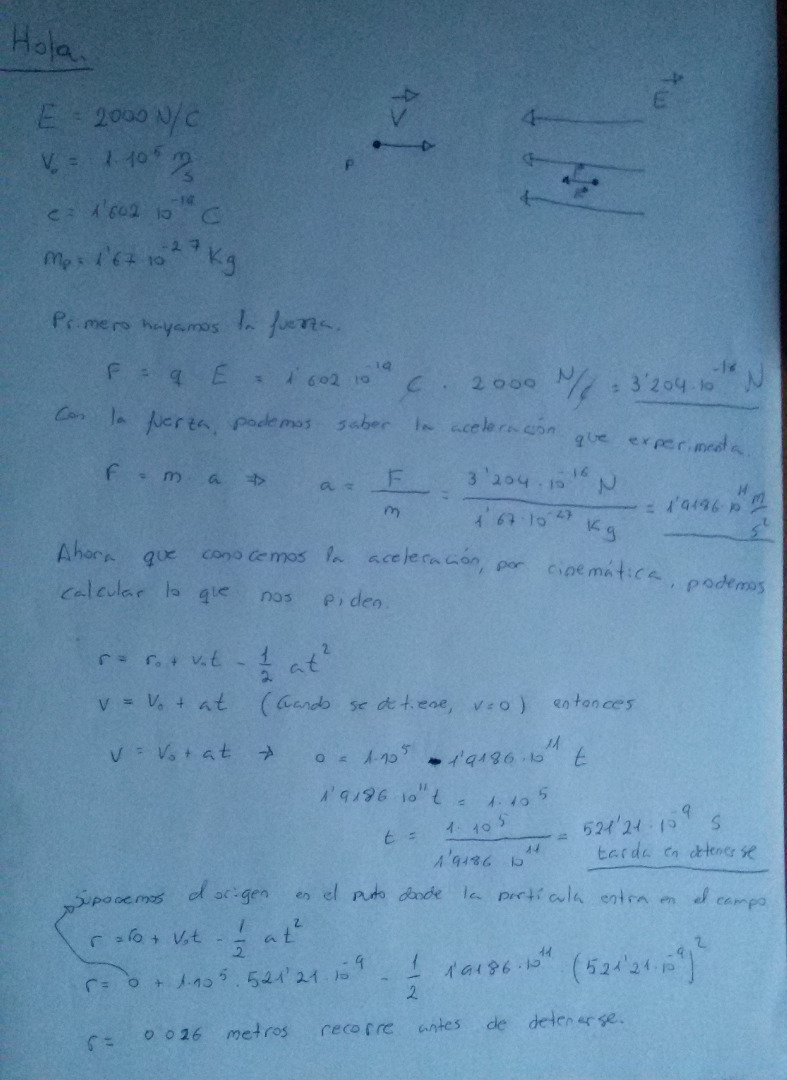 Hola.
E = 2000 N/C
V₀ = 1·10⁵ m/s
e = 1'602 10⁻¹⁹ C
mp = 1'67·10⁻²⁷ Kg
P
V
E
Primero hayamos la fuerza.
F = q E = 1'602 10⁻¹⁹ C · 2000 N/C = 3'204·10⁻¹⁶ N
Con la fuerza, podemos saber la aceleración que experimenta.
F = m·a ⇒ a = F/m = 3'204·10⁻¹⁶ N / 1'67·10⁻²⁷ Kg = 1'9186 10¹¹ m/s²
Ahora que conocemos la aceleración, por cinemática, podemos
calcular lo que nos piden.
r = r₀ + v₀t - 1/2 at²
v = v₀ + at (Cuando se detiene, v=0) entonces
v = v₀ + at → 0 = 1·10⁵ - 1'9186·10¹¹ t
1'9186 10¹¹ t = 1·10⁵
t = 1·10⁵ / 1'9186 10¹¹ = 521'21·10⁻⁹ s
tarda en detenerse
Suponemos el origen en el puto donde la partícula entra en el campo
r = r₀ + v₀t - 1/2 at²
r = 0 + 1·10⁵ · 521'21·10⁻⁹ - 1/2 1'9186·10¹¹ · (521'21·10⁻⁹)²
r = 0'026 metros recorre antes de detenerse.